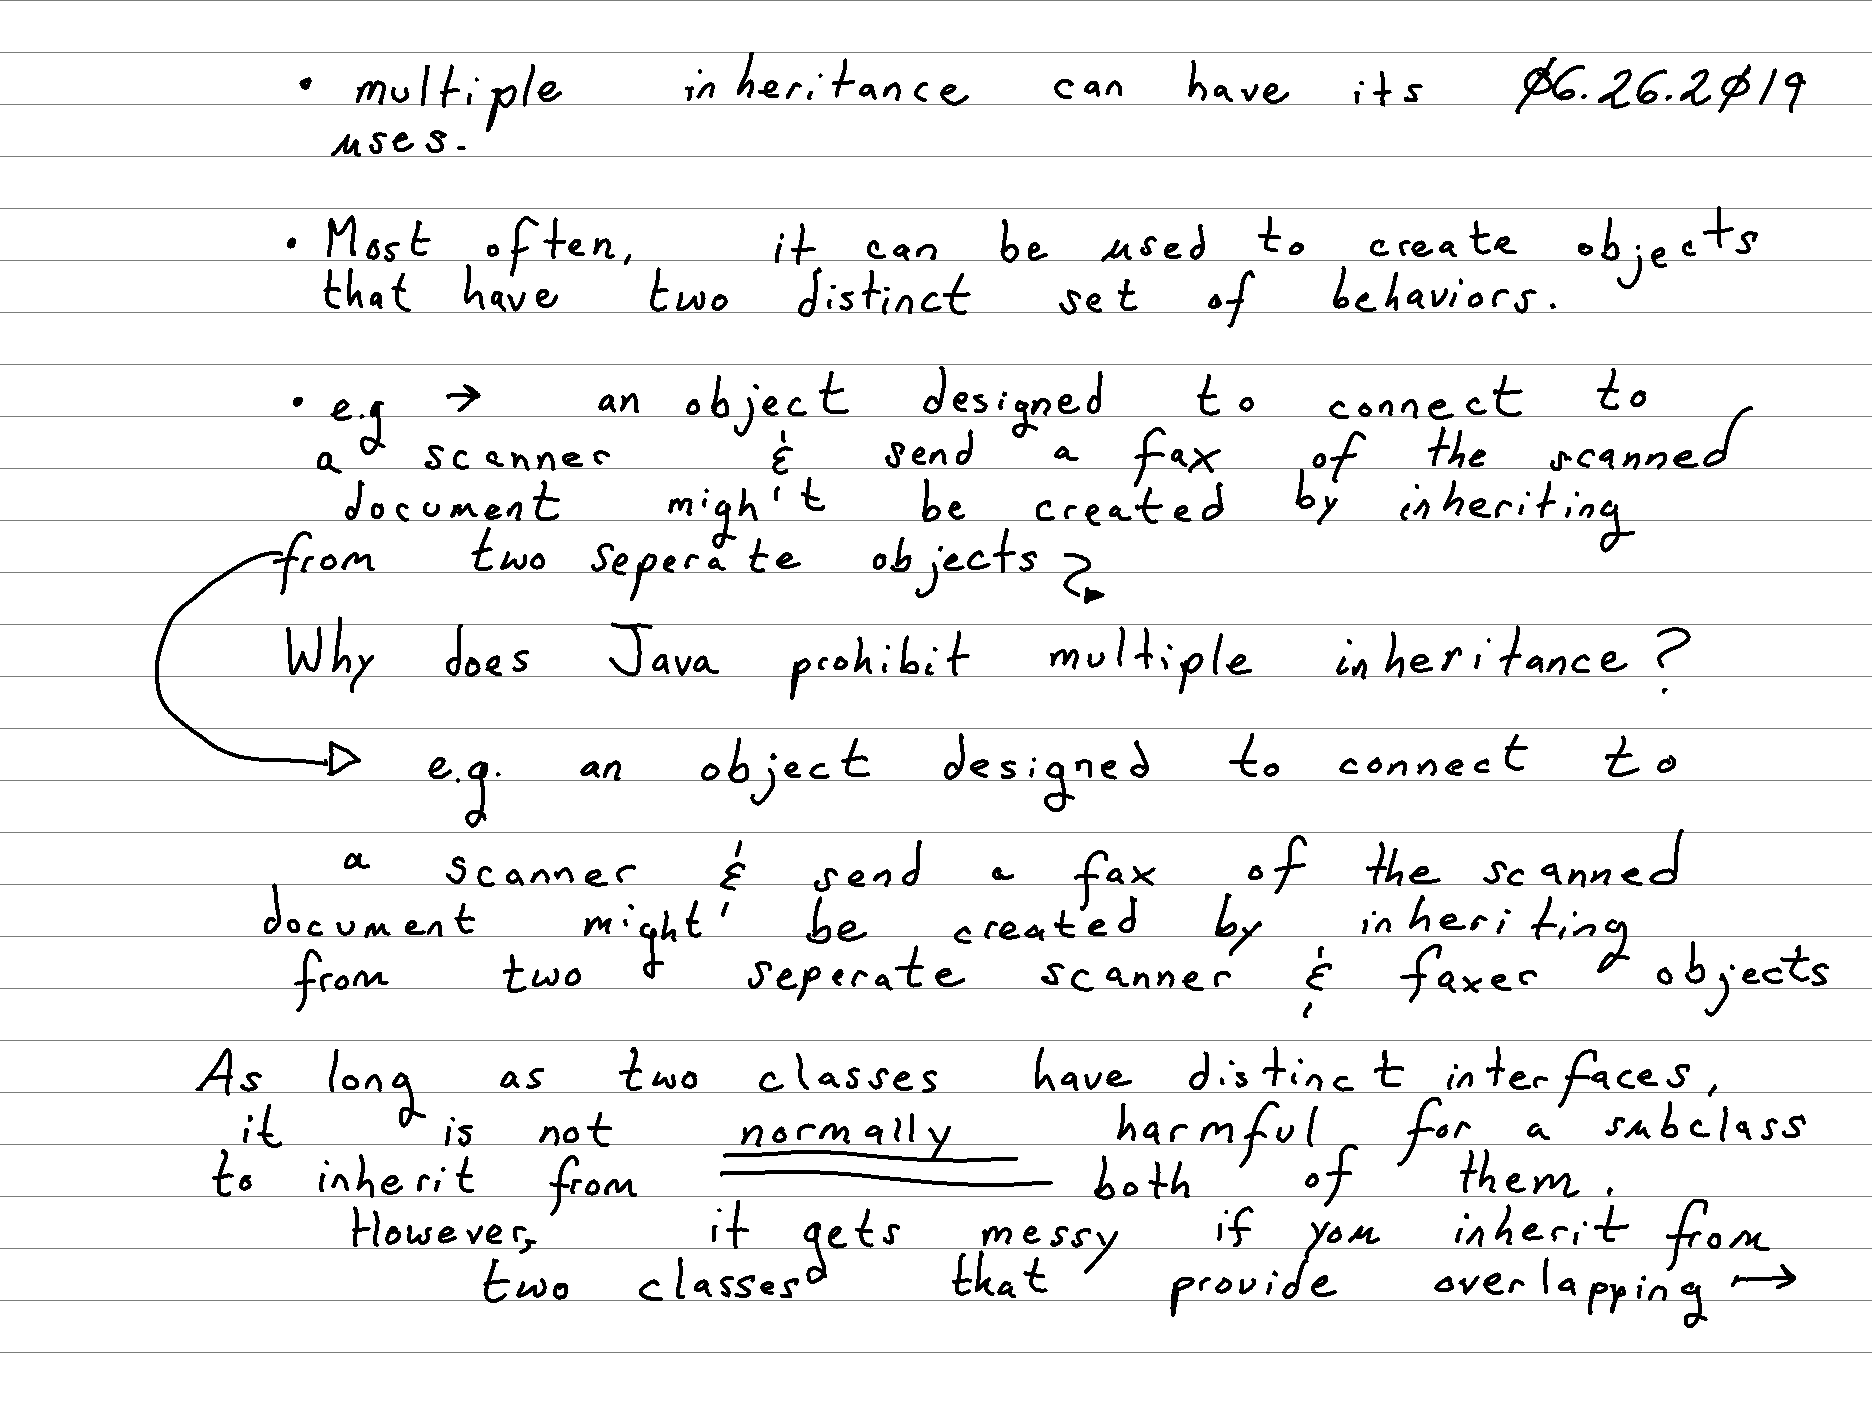 • multiple inheritance can have its 06.26.2019
uses.
• Most often, it can be used to create objects
that have two distinct set of behaviors.
• e.g → an object designed to connect to
a scanner & send a fax of the scanned
document might be created by inheriting
from two seperate objects
Why does Java prohibit multiple inheritance?
e.g. an object designed to connect to
a scanner & send a fax of the scanned
document might be created by inheriting
from two seperate scanner & faxer objects
As long as two classes have distinct interfaces,
it is not normally harmful for a subclass
to inherit from both of them.
However, it gets messy if you inherit from
two classes that provide overlapping →